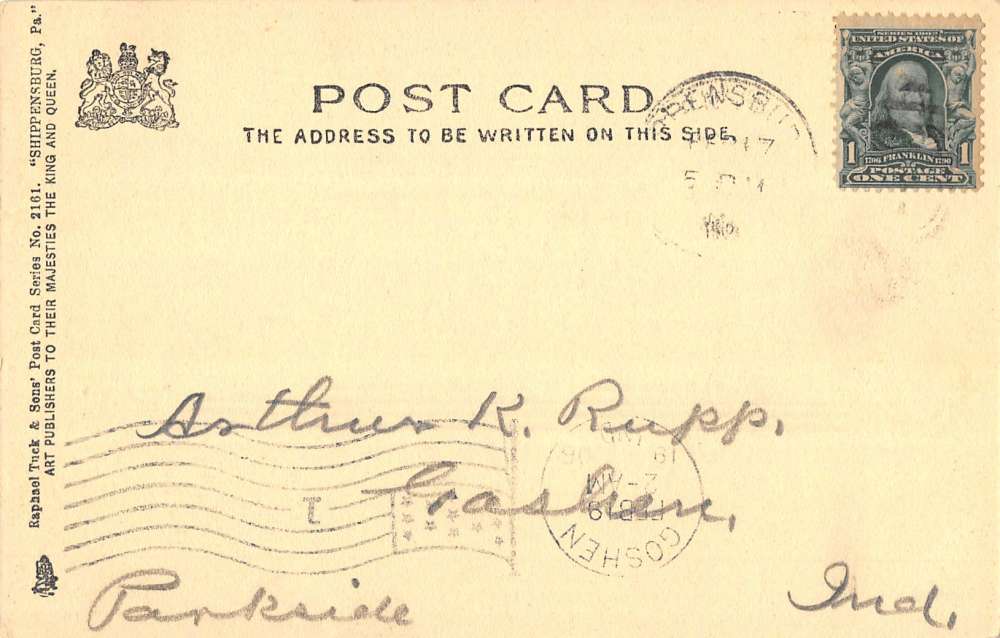 POST CARD
THE ADDRESS TO BE WRITTEN ON THIS SIDE.
SERIES 1902
UNITED STATES OF
AMERICA
1 1706 FRANKLIN 1790 1
POSTAGE
ONE CENT
17
Raphael Tuck & Sons' Post Card Series No. 2161. "SHIPPENSBURG, Pa."
ART PUBLISHERS TO THEIR MAJESTIES THE KING AND QUEEN.
Arthur K. Rupp.
Goshen,
Parkside Ind.
1
GOSHEN
FEB 19
2-AM
19 06
IND